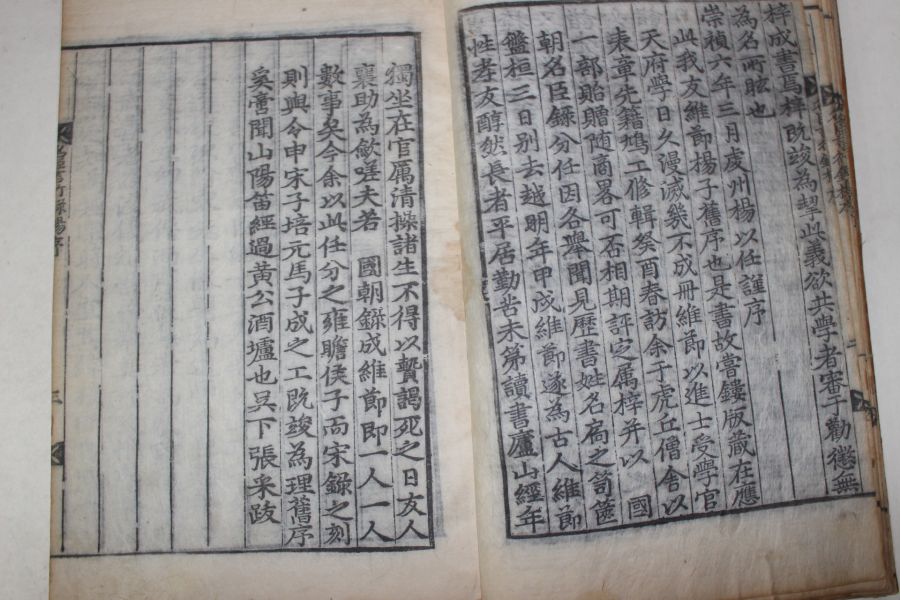 梓成書焉梓既竣為挈此義欲共學者審于勸懲無
為名所眩也
崇禎六年三月處州楊以任謹序
此我友維節楊子舊序也是書故嘗鏤版藏在應
天府學日久漫滅幾不成冊維節以進士受學官
表章先籍鳩工修輯癸酉春訪余于虎丘僧舍以
一部貽贈隨商畧可否相期評定属梓并以 國
朝名臣錄分任因各舉聞見歷書姓名為之笥篋
盤桓三日別去越明年甲戌維節遂為古人維節
性孝友醇然長者平居勤苦未第讀書廬山經年
獨坐在官厲清操諸生不得以贄謁死之日友人
襄助為斂嗟夫若 國朝錄成維節即一人一人
數事矣今余以此任分之雍瞻侯子而宋錄之刻
則與令申宋子培元馬子成之工既竣為理舊序
奚啻聞山陽笛經過黄公酒壚也㫒下張采跋
三